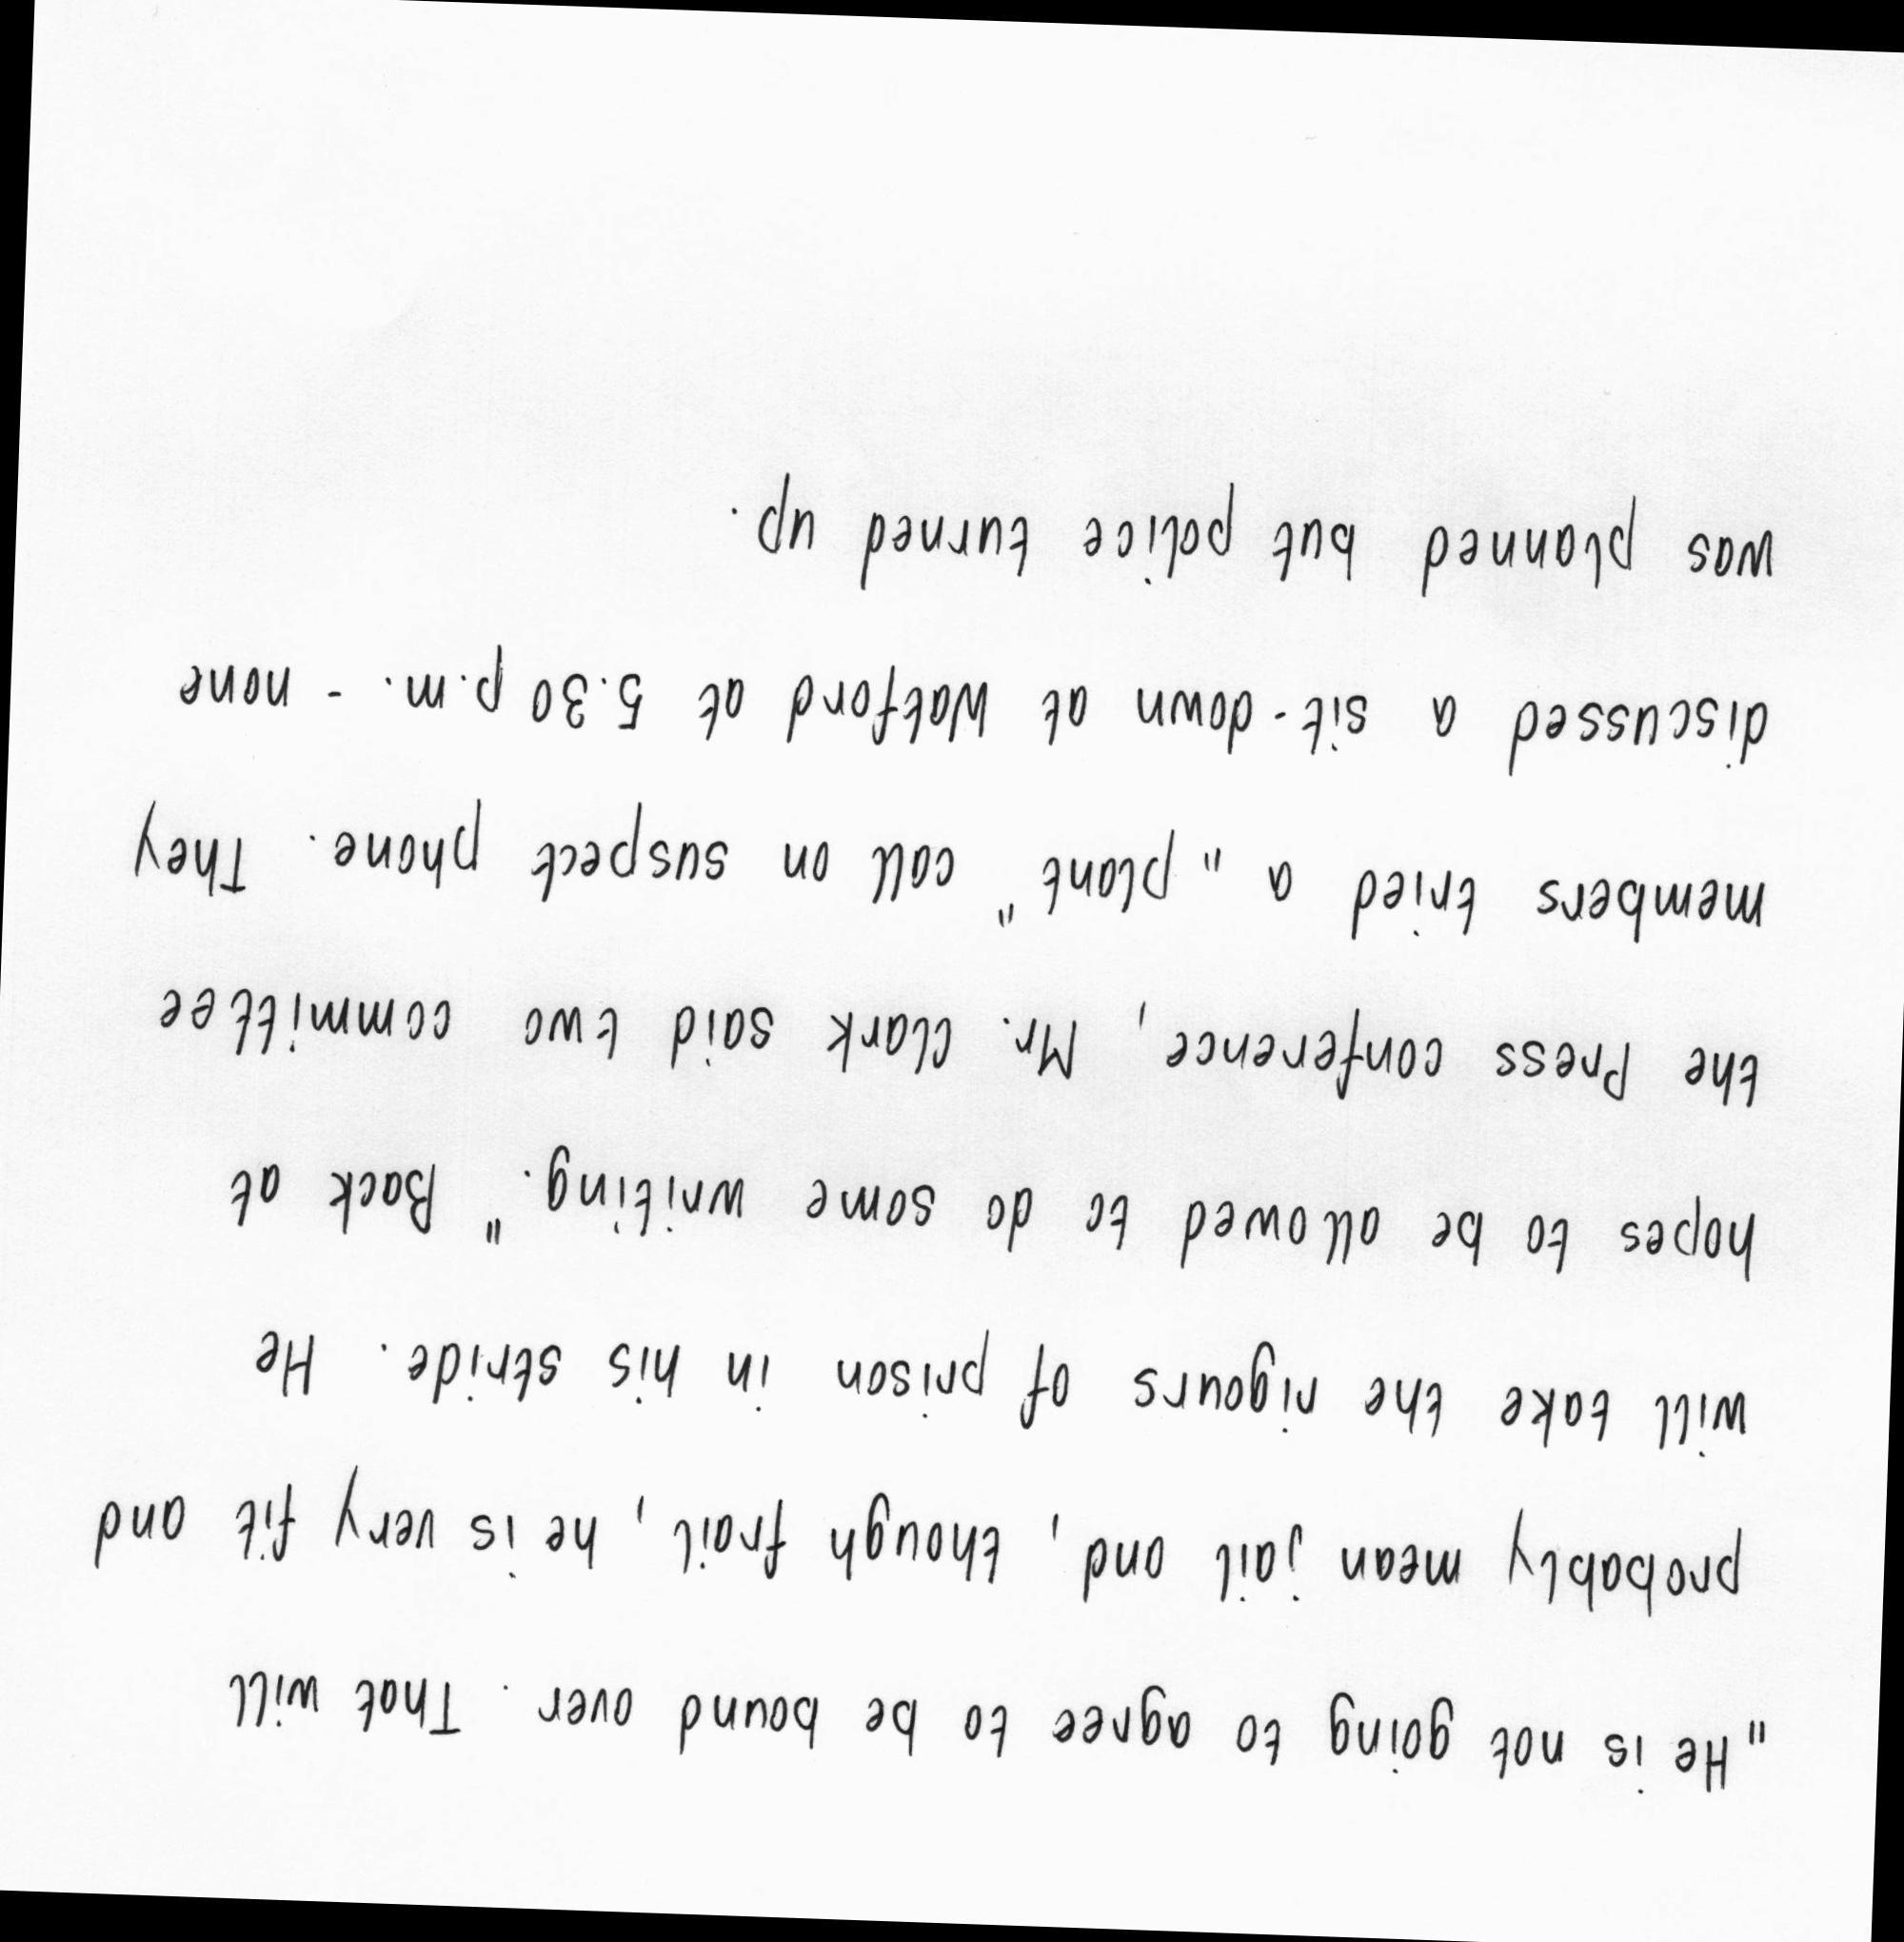 "He is not going to agree to be bound over. That will
probably mean jail and, though frail, he is very fit and
will take the rigours of prison in his stride. He
hopes to be allowed to do some writing." Back at
the Press conference, Mr. Clark said two committee
members tried a "plant" call on suspect phone. They
discussed a sit-down at Watford at 5.30 p.m. - none
was planned but police turned up.